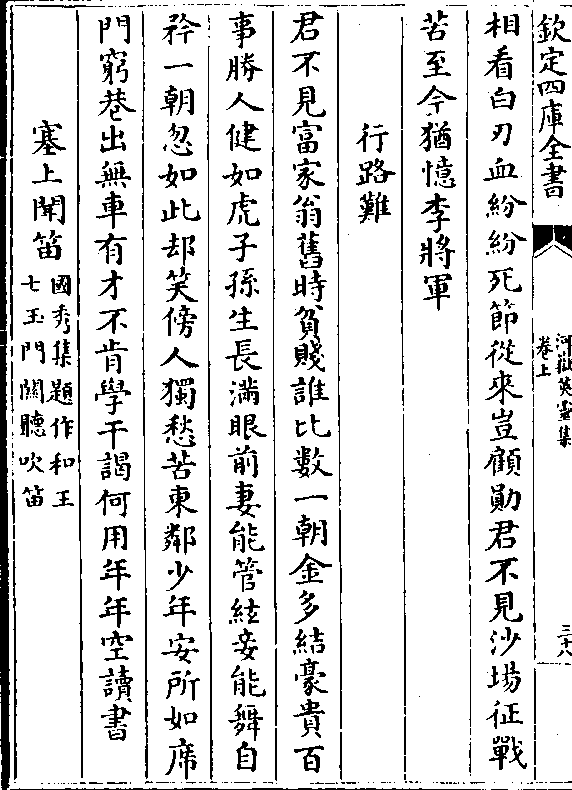 欽定四庫全書
河嶽英靈集
卷上
三十八
相看白刃血紛紛死節從來豈顧勛君不見沙場征戰
苦至今猶憶李將軍
行路難
君不見富家翁舊時貧賤誰比數一朝金多結豪貴百
事勝人健如虎子孫生長滿眼前妻能管絃妾能舞自
矜一朝忽如此却笑傍人獨愁苦東鄰少年安所如席
門窮巷出無車有才不肯學干謁何用年年空讀書
塞上聞笛
國秀集題作和王
七玉門關聽吹笛